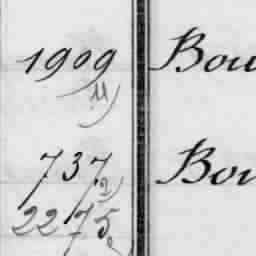 1909 Bou
11)
737 Bou
2)
2275